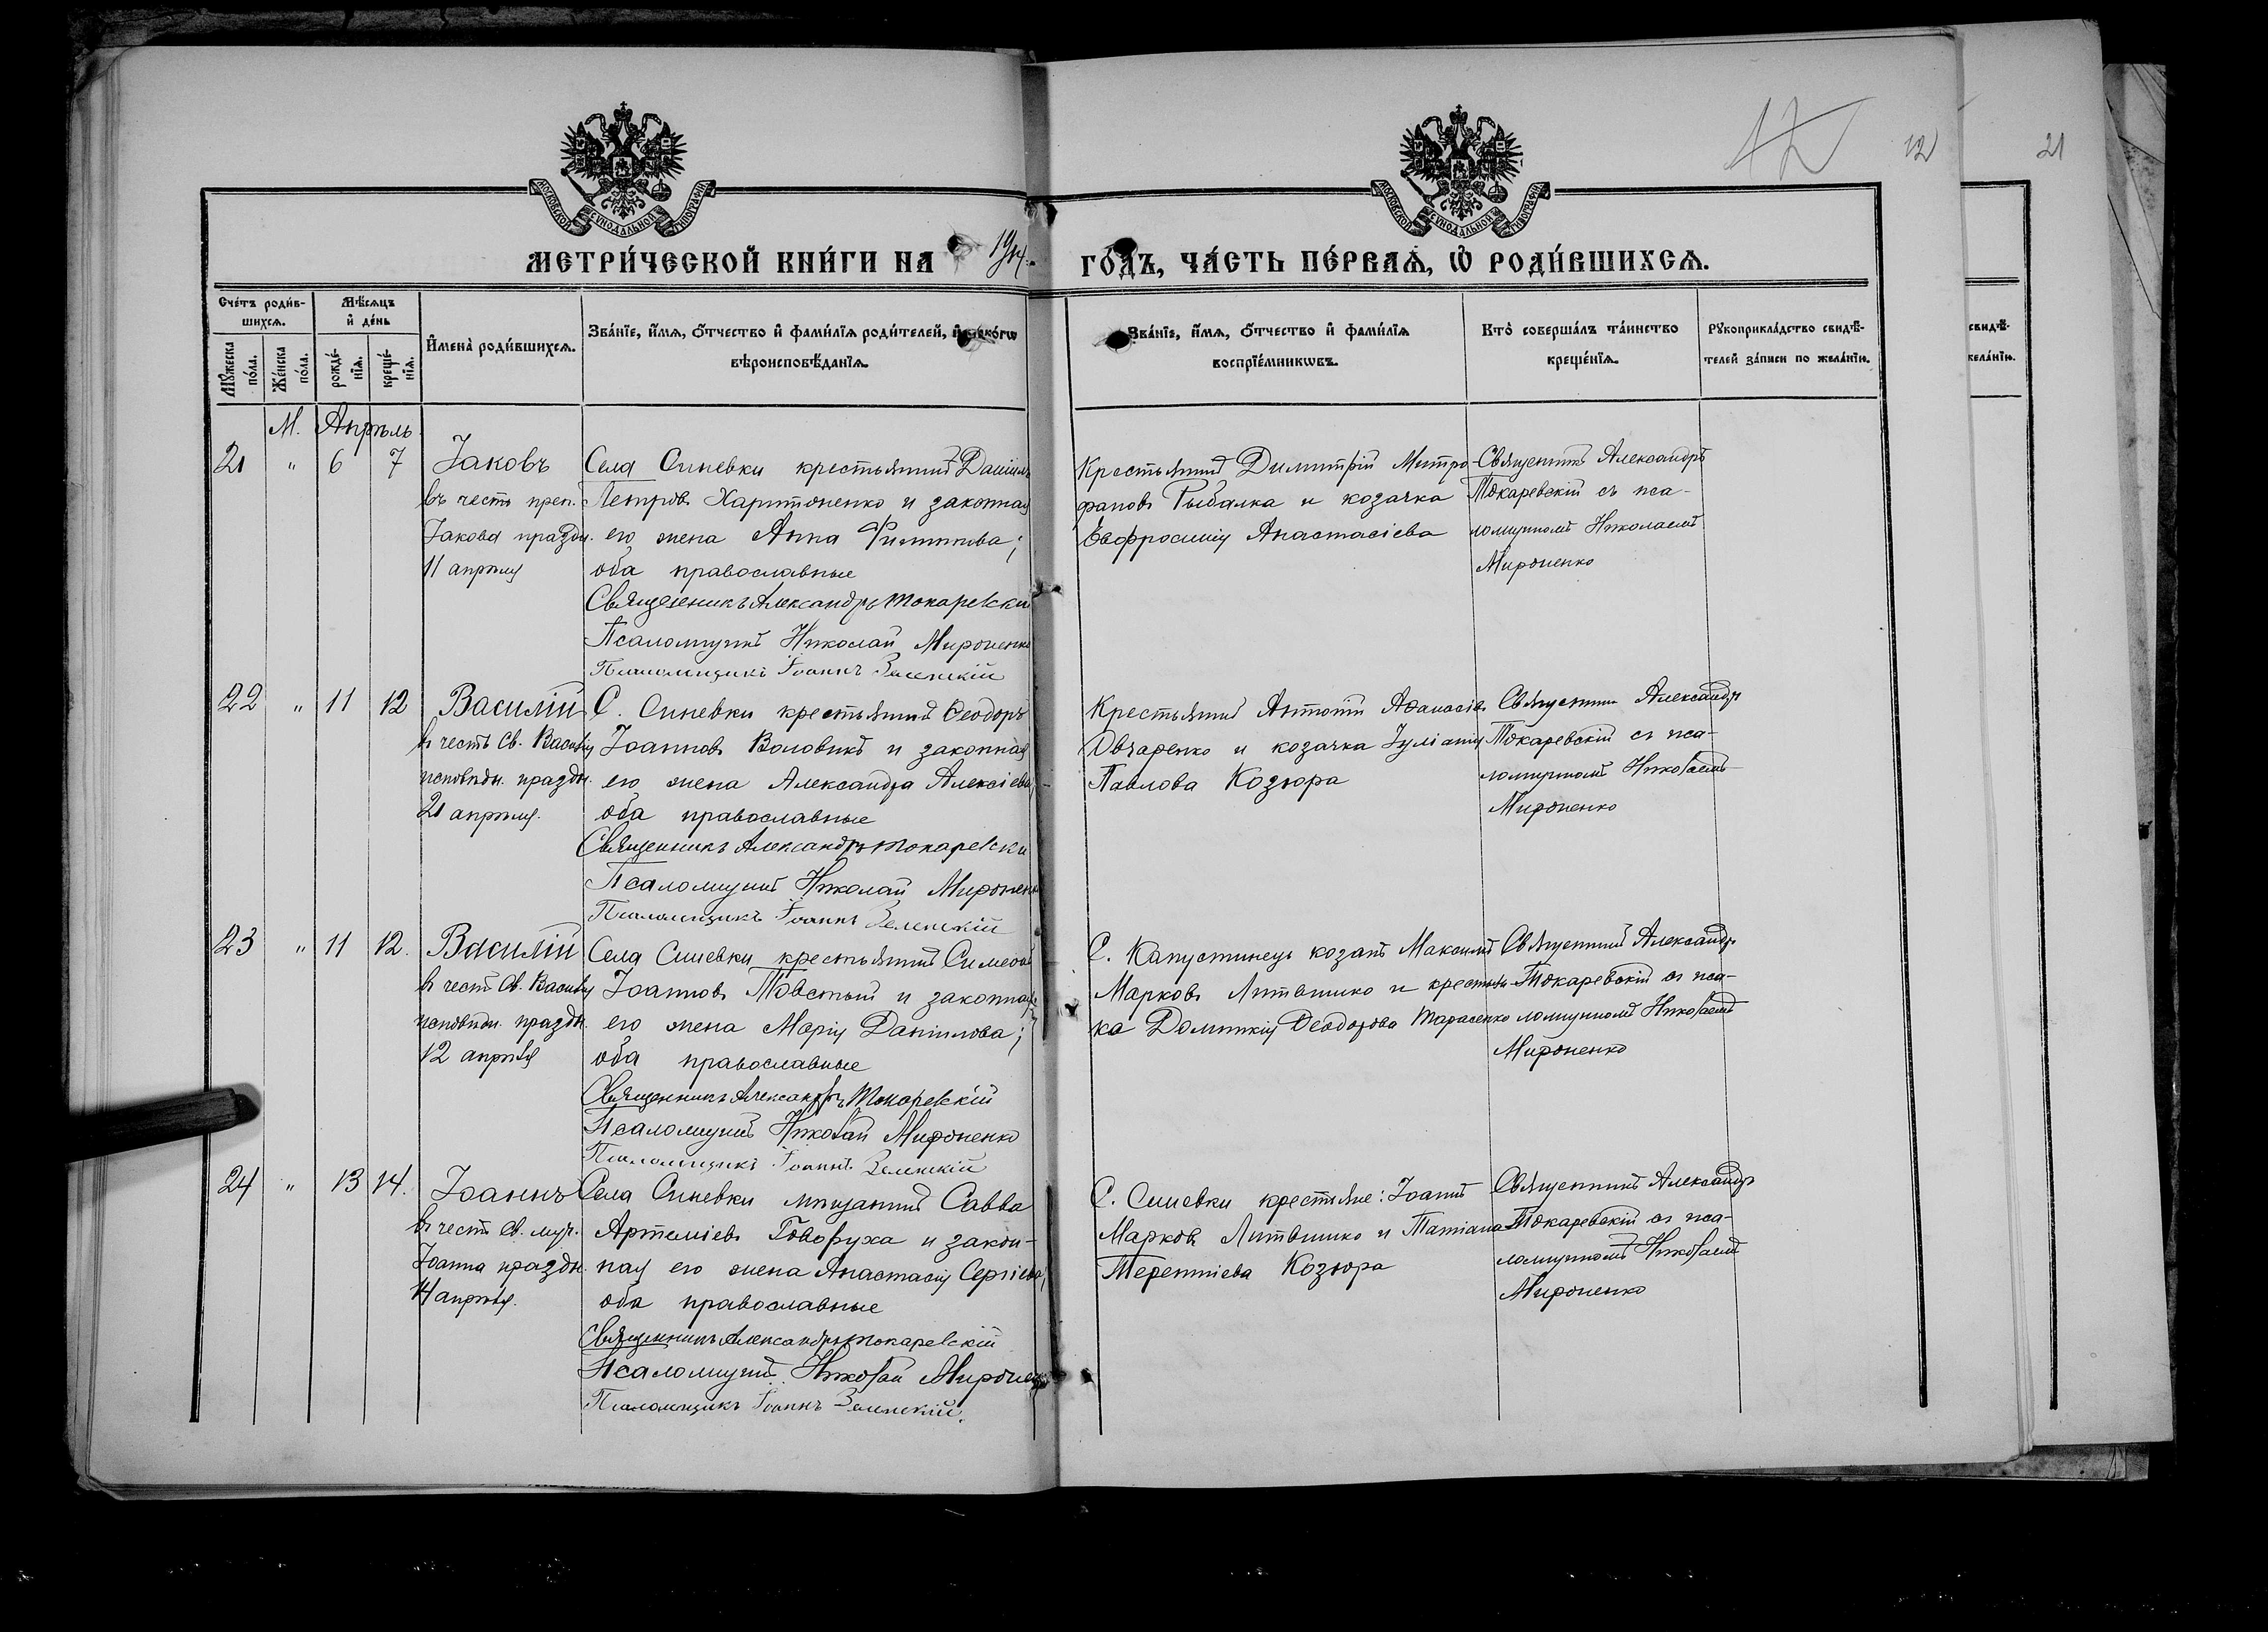 12
12
21
МОСКОВСКОЙ СУНОДАЛЬНОЙ ТИПОГРАФІИ
МОСКОВСКОЙ СУНОДАЛЬНОЙ ТИПОГРАФІИ
МЕТРИ́ЧЕСКОЙ КНИ́ГИ НА 1914
ГО́ДЪ, ЧА́СТЬ ПЕ́РВАЯ, Ѡ РОДИ́ВШИХСЯ.
Сче́тъ роди́в-
шихся.
Мѣ́сяцъ
и де́нь
Му́жеска по́ла.
Же́нска по́ла.
рожде́-
нія.
креще́-
нія.
Имена̀ роди́вшихся.
Зва́ніе, и́мя, ѻ́тчество и фами́лія роди́телей, и како́гѡ
вѣроисповѣ́данія.
Зва́ніе, и́мя, ѻ́тчество и фами́лія
воспріе́мникѡвъ.
Кто̀ соверша́лъ та́инство
креще́нія.
Рукоприкла́дство свидѣ́-
телей за́писи по жела́нію.
свидѣ́-
жела́нію.
М. Апрѣль
21 " 6 7
Іаковъ
въ честь преп.
Іакова праздн.
11 апрѣля
Села Синевки крестьянинъ Даніилъ
Петровъ Харитоненко и законная
его жена Анна Филиппова;
оба православные
Священникъ Александръ Токаревскій
Псаломщикъ Николай Мироненко
Псаломщикъ Іоаннъ Зеленскій
Крестьянинъ Димитрій Митро-
фановъ Рыбалка и козачка
Евфросинія Анастасіева
Священникъ Александръ
Токаревскій съ пса-
ломщикомъ Николаемъ
Мироненко
22 " 11 12
Василій
въ честь Св. Василія
исповѣдн. праздн.
21 апрѣля.
С. Синевки крестьянинъ Ѳеодоръ
Іоанновъ Воловикъ и законная
его жена Александра Алексіева;
оба православные
Священникъ Александръ Токаревскій
Псаломщикъ Николай Мироненко
Псаломщикъ Іоаннъ Зеленскій
Крестьянинъ Антоній Аѳанасіевъ
Овчаренко и козачка Іуліанія
Павлова Козюра
Священникъ Александръ
Токаревскій съ пса-
ломщикомъ Николаемъ
Мироненко
23 " 11 12.
Василій
въ честь Св. Василія
исповѣдн. праздн.
12 апрѣля
Села Синевки крестьянинъ Симеонъ
Іоанновъ Товстый и законная
его жена Марія Даніилова;
оба православные
Священникъ Александръ Токаревскій
Псаломщикъ Николай Мироненко
Псаломщикъ Іоаннъ Зеленскій
С. Капустинецъ козакъ Максимъ
Марковъ Литвинко и крестьян-
ка Домникія Ѳеодорова Тарасенко
Священникъ Александръ
Токаревскій съ пса-
ломщикомъ Николаемъ
Мироненко
24 " 13 14.
Іоаннъ
въ честь Св. муч.
Іоанна праздн.
14 апрѣля.
Села Синевки мѣщанинъ Савва
Артеміевъ Говоруха и закон-
ная его жена Анастасія Сергіева;
оба православные
Священникъ Александръ Токаревскій
Псаломщикъ Николай Мироненко
Псаломщикъ Іоаннъ Зеленскій.
С. Синевки крестьяне: Іоаннъ
Марковъ Литвинко и Татіана
Терентіева Козюра
Священникъ Александръ
Токаревскій съ пса-
ломщикомъ Николаемъ
Мироненко